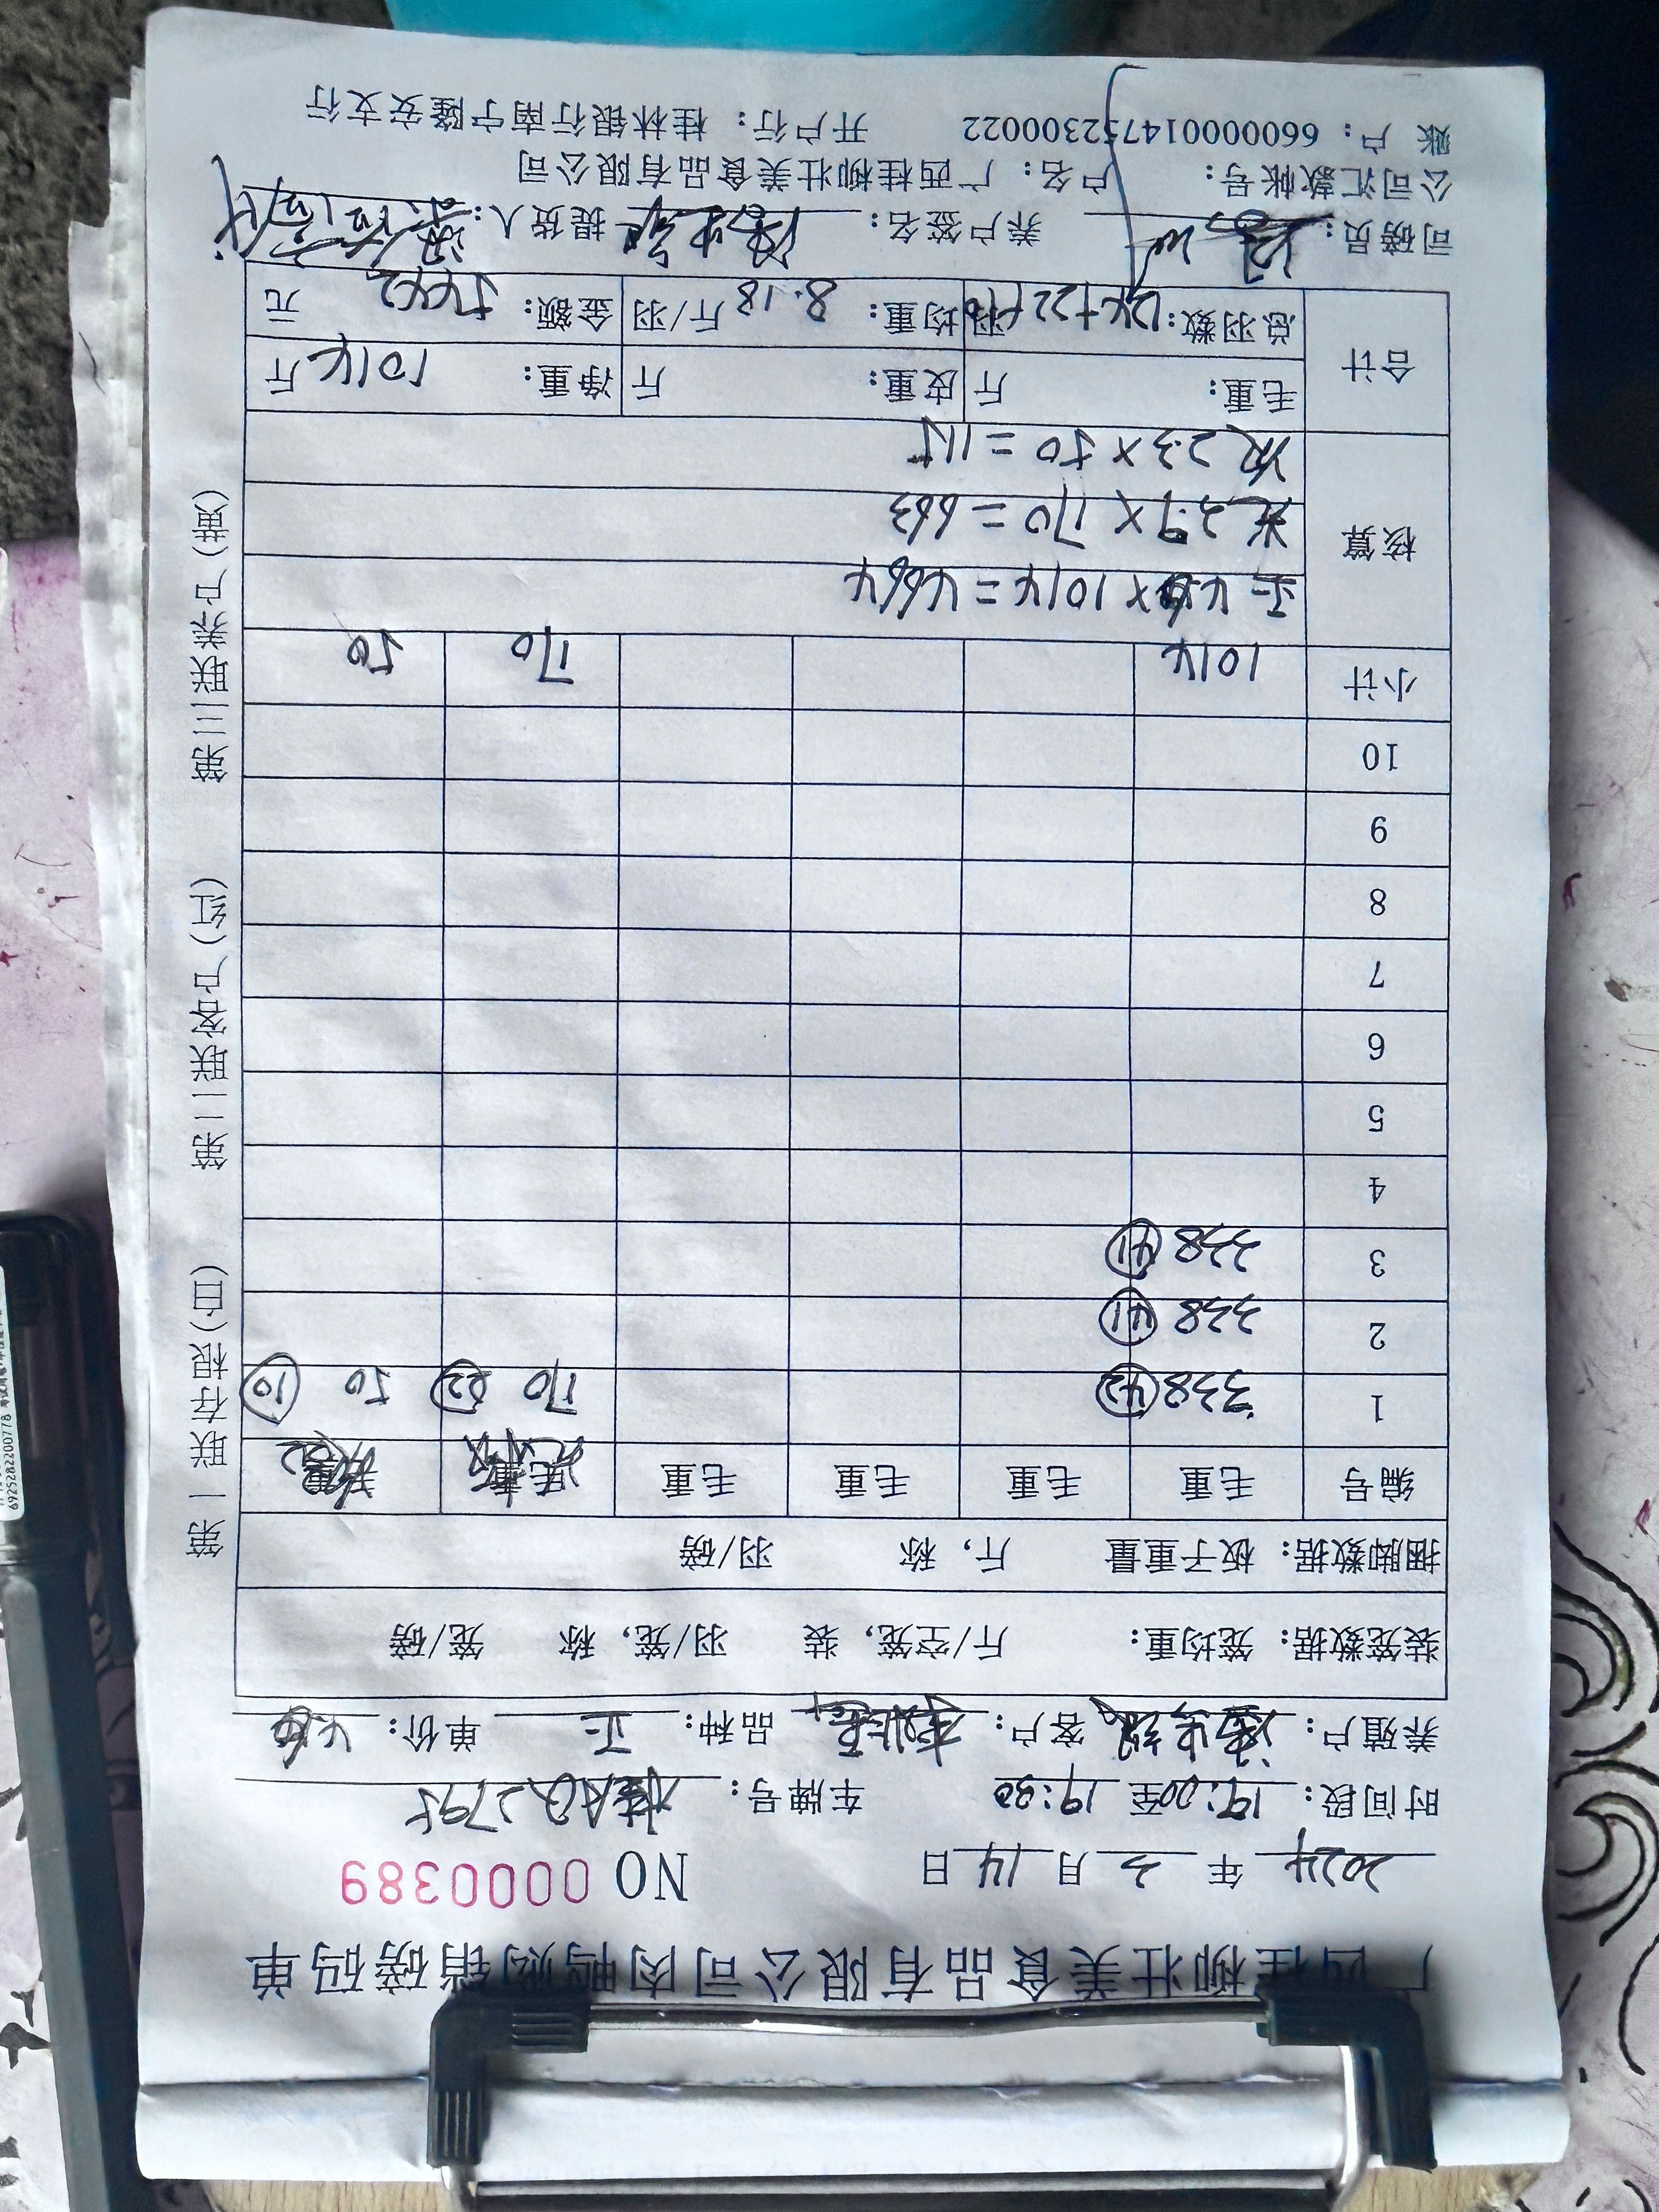 广西桂柳壮美食品有限公司肉鸭购销磅码单
2024年3月14日 NO 0000389
时间段：19:00至19:30 车牌号：桂AQ2795
养殖户： 客户： 品种：正 单价：4.6
装笼数据：笼均重： 斤/空笼，装 羽/笼，称 笼/磅
捆脚数据：板子重量 斤，称 羽/磅
编号 毛重 毛重 毛重 毛重
1 338 42 170 22 50 10
2 338 41
3 338 41
4
5
6
7
8
9
10
小计 1014 170 50
核算 正 4.6×1014=4664
3.9×170=663
2.3×50=115
合计 毛重： 斤 皮重： 斤 净重：1014斤
总羽数：124+22+10羽 均重：8.18斤/羽 金额：5442元
司磅员： 养户签名： 提货人：
公司汇款帐号： 户名：广西桂柳壮美食品有限公司
账 户：660000014752300022 开户行：桂林银行南宁隆安支行
第一联存根(白) 第二联客户(红) 第三联养户(黄)
6925282200778